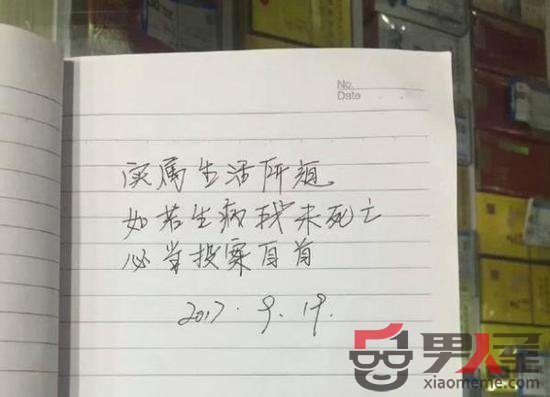 No.
Date
实属生活所迫
如若生病我未死亡
必当投案自首
2017.9.19.
男人窝
xiaomeme.com